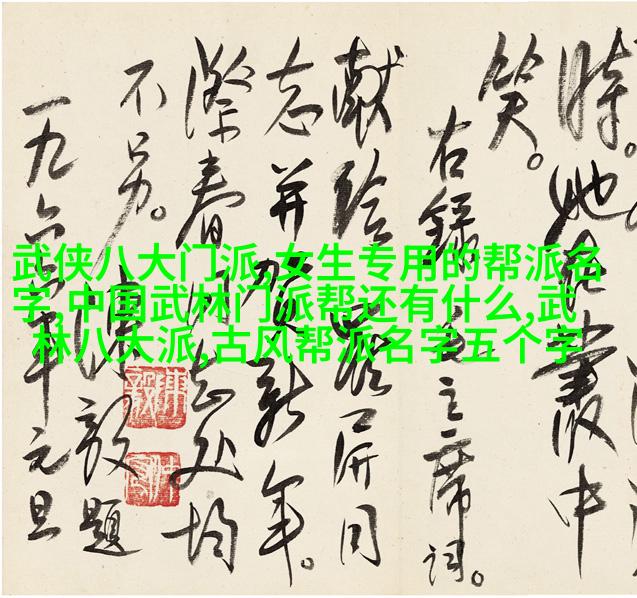 武侠八大门派,女生专用的帮派名
字,中国武林门派帮还有什么,武
林八大派,古风帮派名字五个字
時。她在叢中
笑。
右錄毛主席詞。
献给屏同
志并賀新年。
際春同志处均
不另。
陳毅題
一九六年元旦